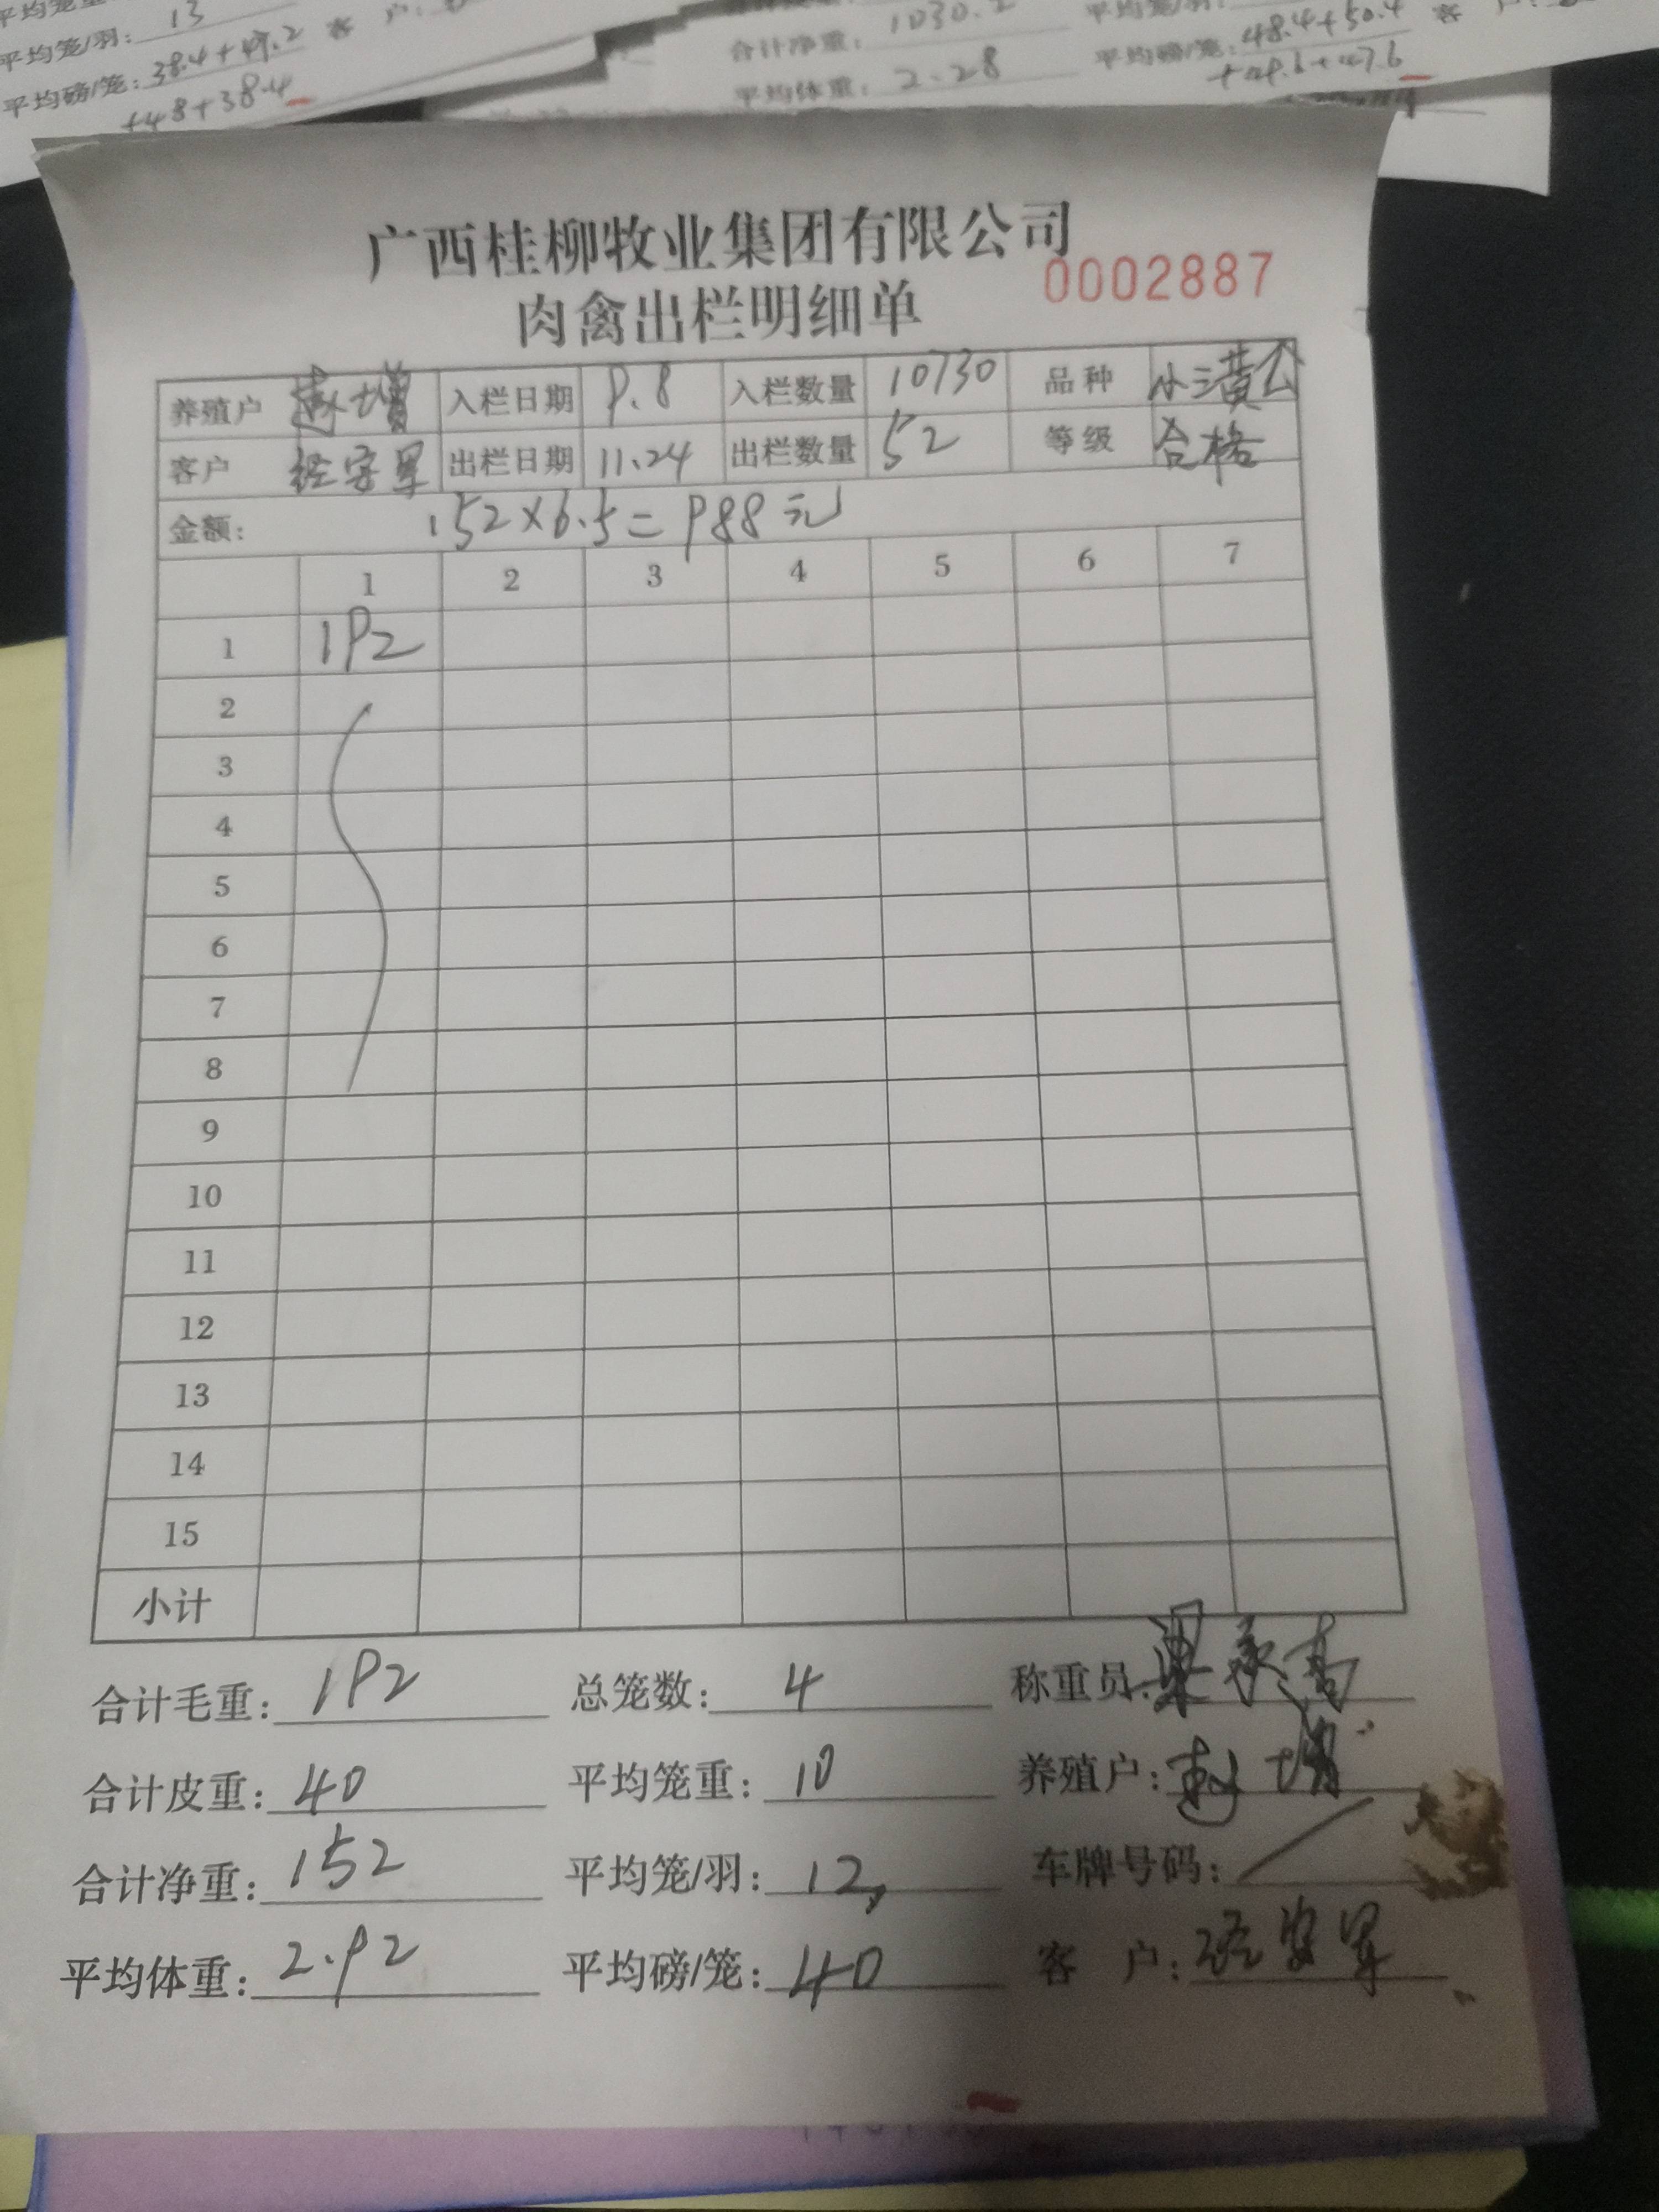 平均笼/羽: 13
平均磅/笼: 38.4+49.2 客 户:
+48+38.4
合计净重: 1030.2
平均体重: 2.28
平均磅/笼: 48.4+50.4 客
+49.6+47.6
广西桂柳牧业集团有限公司
0002887
肉禽出栏明细单
养殖户 赵增 入栏日期 9.8 入栏数量 10730 品种 小三黄公
客户 出栏日期 11.24 出栏数量 52 等级 合格
金额: 152×6.5=988元
1 2 3 4 5 6 7
1 192
2
3
4
5
6
7
8
9
10
11
12
13
14
15
小计
合计毛重: 192 总笼数: 4 称重员:
合计皮重: 40 平均笼重: 10 养殖户: 赵增
合计净重: 152 平均笼/羽: 12, 车牌号码: /
平均体重: 2.92 平均磅/笼: 40 客 户: